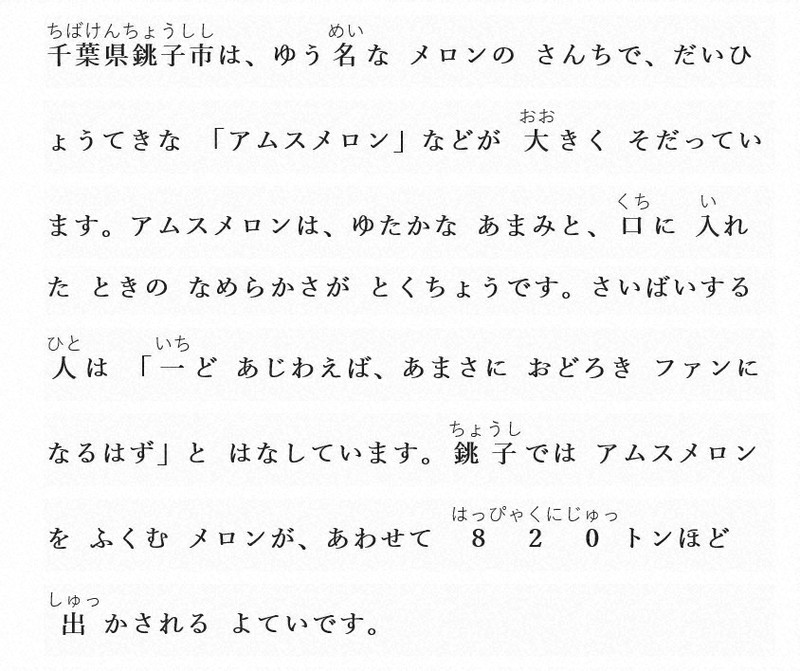 ちばけんちょうしし めい
千葉県銚子市は、ゆう名な メロンの さんちで、だいひ
おお
ょうてきな 「アムスメロン」などが 大きく そだってい
くち い
ます。アムスメロンは、ゆたかな あまみと、口に 入れ
た ときの なめらかさが とくちょうです。さいばいする
ひと いち
人は 「一ど あじわえば、あまさに おどろき ファンに
ちょうし
なるはず」と はなしています。銚子では アムスメロン
はっぴゃくにじゅっ
を ふくむ メロンが、あわせて 820トンほど
しゅっ
出かされる よていです。